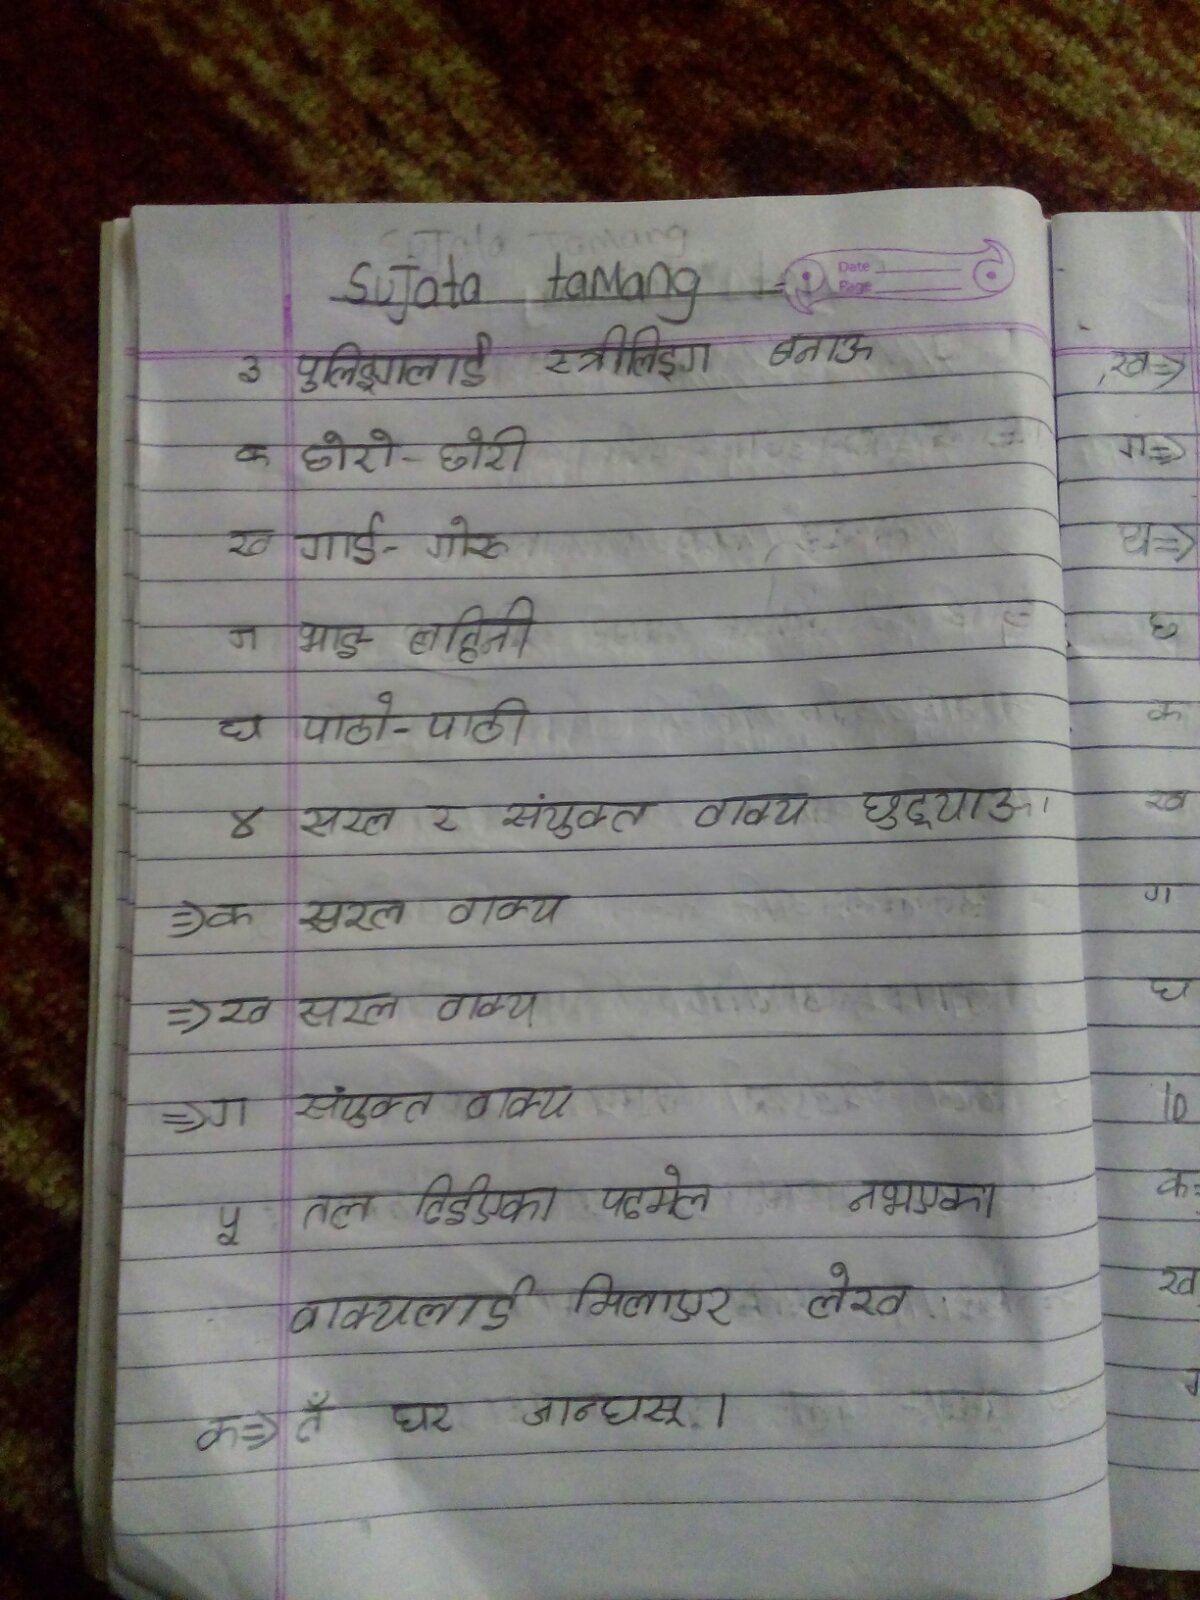 Sujata tamang
Date
Page
३ पुलिङ्गलाई स्त्रीलिङ्ग बनाऊ
क छोरो-छोरी
ख गाई-गोरु
ग भाइ-बहिनी
घ पाठो-पाठी
४ सरल र संयुक्त वाक्य छुट्याऊ।
⇒क सरल वाक्य
⇒ख सरल वाक्य
⇒ग संयुक्त वाक्य
५ तल दिईएका पदमेल नभएका
वाक्यलाई मिलाएर लेख
क⇒ तँ घर जान्छस्।
ख⇒
ग⇒
घ⇒
क
ख
ग
घ
10
क
ख